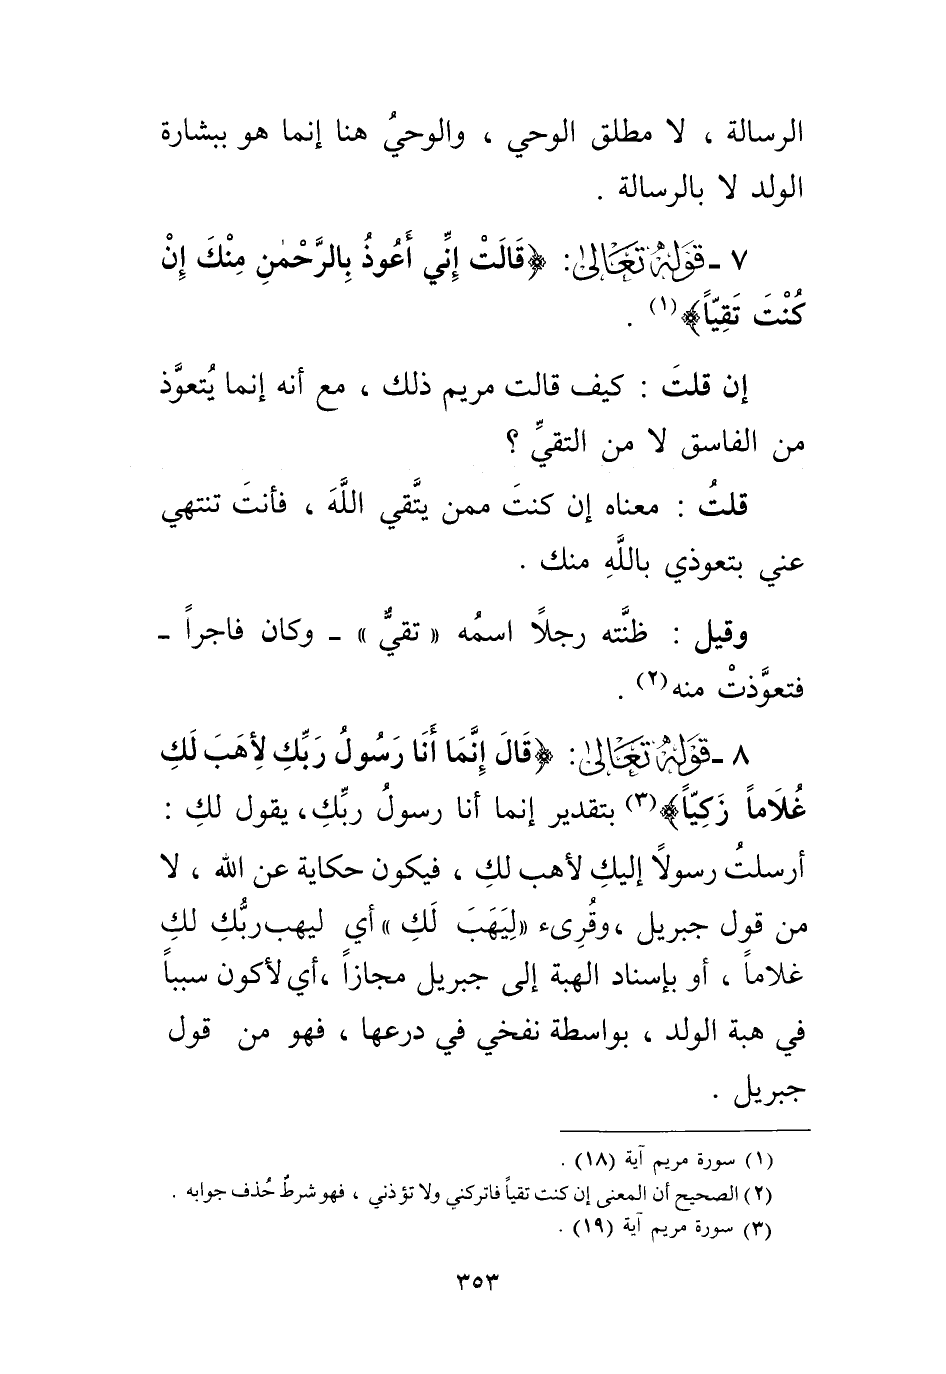 الرسالة ، لا مطلق الوحي ، والوحيُ هنا إنما هو ببشارة
الولد لا بالرسالة .
٧ ـ قَوْلُهُ تَعَالىٰ: ﴿قَالَتْ إِنِّي أَعُوذُ بِالرَّحْمٰنِ مِنْكَ إِنْ
كُنْتَ تَقِيّاً﴾(١) .
إن قلتَ : كيف قالت مريم ذلك ، مع أنه إنما يُتعوَّذ
من الفاسق لا من التقيِّ ؟
قلتُ : معناه إن كنتَ ممن يتَّقي اللَّهَ ، فأنتَ تنتهي
عني بتعوذي باللَّهِ منك .
وقيل : ظنَّته رجلًا اسمُه « تقيٌّ » ـ وكان فاجراً ـ
فتعوَّذتْ منه(٢) .
٨ ـ قَوْلُهُ تَعَالىٰ: ﴿قَالَ إِنَّمَا أَنَا رَسُولُ رَبِّكِ لِأَهَبَ لَكِ
غُلَاماً زَكِيّاً﴾(٣) بتقدير إنما أنا رسولُ ربِّكِ، يقول لكِ :
أرسلتُ رسولًا إليكِ لأهب لكِ ، فيكون حكاية عن الله ، لا
من قول جبريل ، وقُرِىء «لِيَهَبَ لَكِ » أي ليهب ربُّكِ لكِ
غلاماً ، أو بإسناد الهبة إلى جبريل مجازاً ، أي لأكون سبباً
في هبة الولد ، بواسطة نفخي في درعها ، فهو من قول
جبريل .
(١) سورة مريم آية (١٨) .
(٢) الصحيح أن المعنى إن كنت تقياً فاتركني ولا تؤذني ، فهو شرطٌ حُذف جوابه .
(٣) سورة مريم آية (١٩) .
٣٥٣